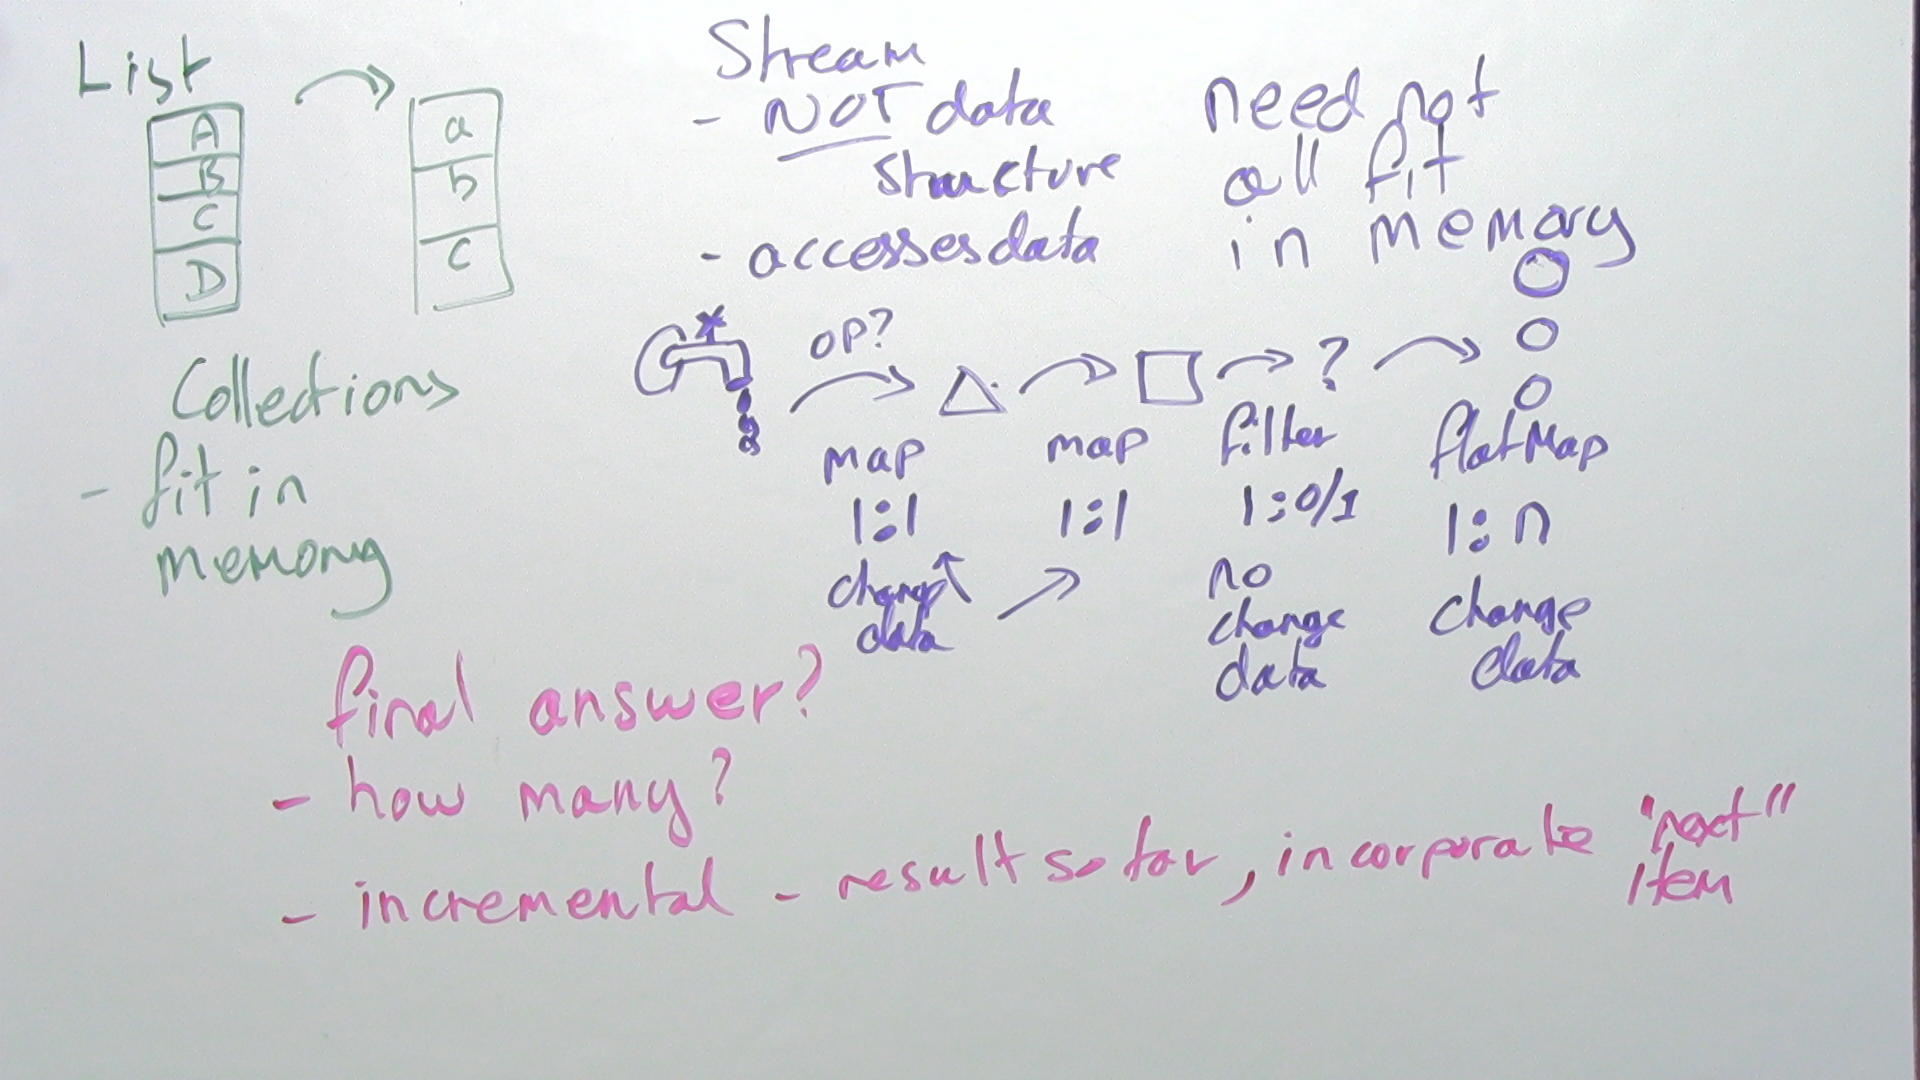 List
A
B
C
D
a
b
c
Collections
- fit in
memory
Stream
- NOT data
structure
- accesses data
need not
all fit
in memory
op?
?
map
1:1
change
data
map
1:1
filter
1:0/1
no
change
data
flatMap
1:n
change
data
final answer?
- how many?
- incremental - result so far, incorporate "next"
item